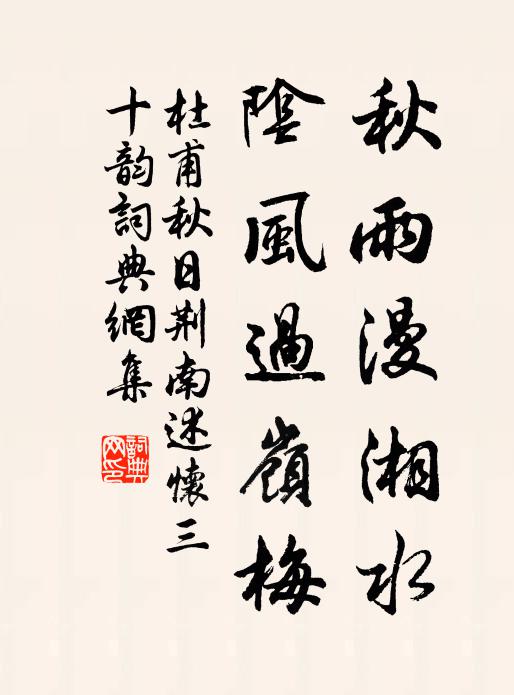 秋雨漫湘水
陰風過嶺梅
杜甫秋日荆南述懷三
十韵詞典網集
詞典网印